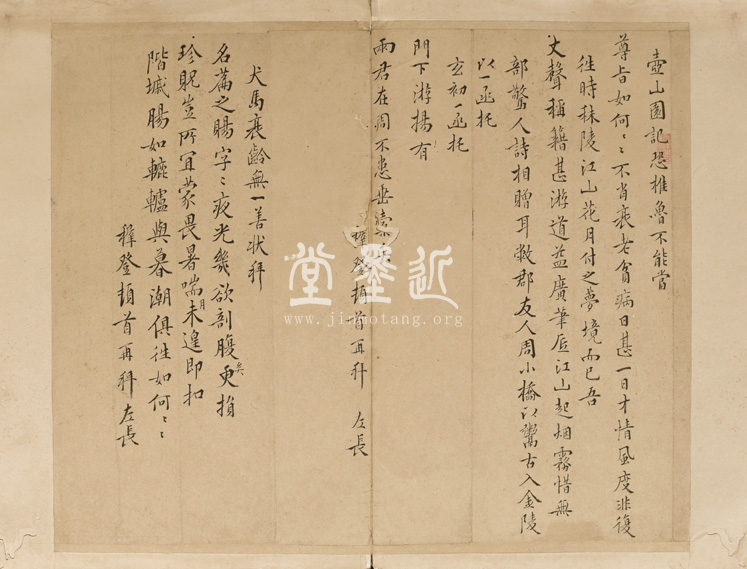 壺山園記恐椎魯不能當
尊旨如何〻不肖衰老貧病日甚一日才情風度非復
徃時秣陵江山花月付之夢境而已吾
丈聲稱籍甚游道益廣筆底江山起烟霧惜無
部驚人詩相贈耳敝郡友人周小橋以鬻古入金陵
以一函托
玄初一函托
門下游揚有
兩君在周不患無
穉登頓首再拜 左長
犬馬衰齡無一善狀拜
名篇之賜字〻夜光幾欲剖腹矣更損
珍貺豈所宜蒙畏暑喘月未遑即扣
階墄腸如轆轤與暮潮俱徃如何〻
穉登頓首再拜 左長
近墨堂
www.jinmotang.org